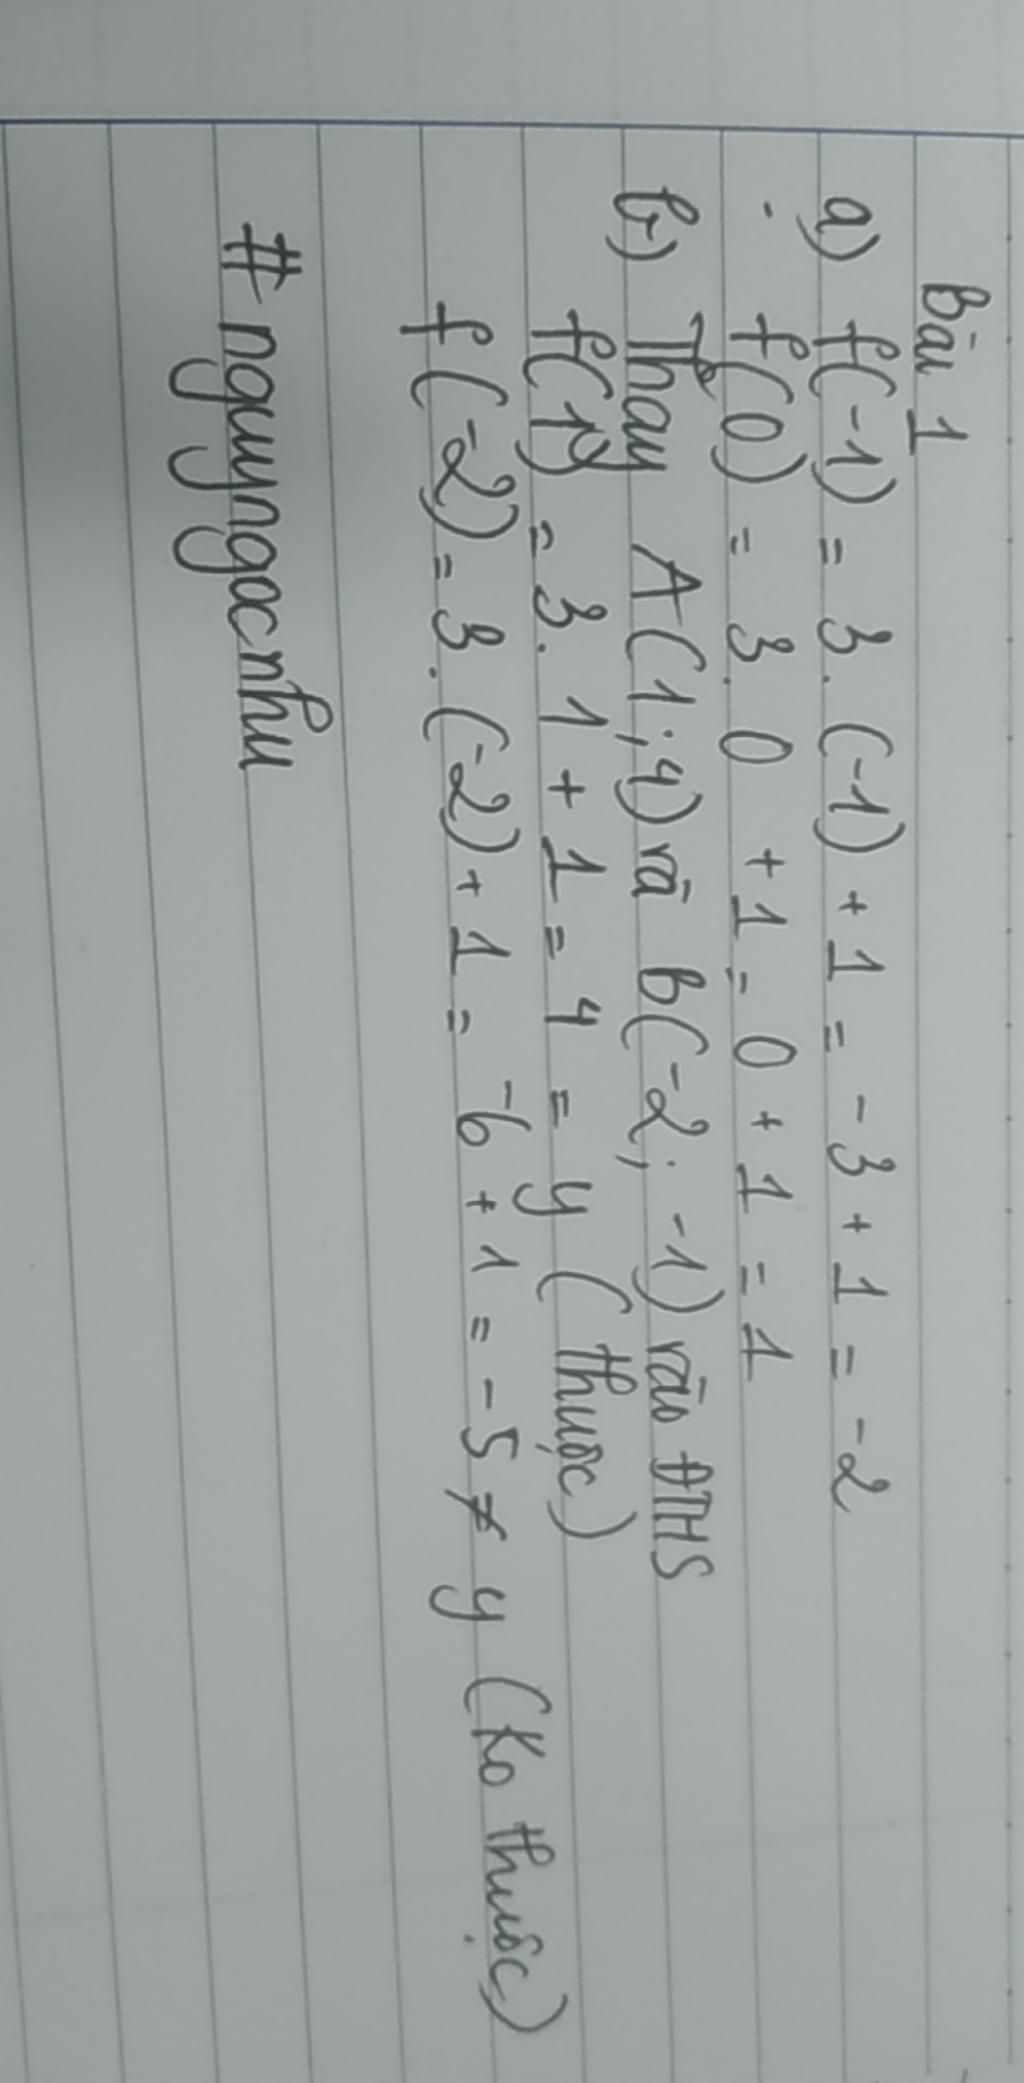 Bài 1
a) f(-1) = 3. (-1) + 1 = -3 + 1 = -2
f(0) = 3. 0 + 1 = 0 + 1 = 1
b) Thay A(1; 4) và B(-2; -1) vào ĐTHS
f(1) = 3. 1 + 1 = 4 = y (thuộc)
f(-2) = 3. (-2) + 1 = -6 + 1 = -5 ≠ y (Ko thuộc)
# nguyngocnhu